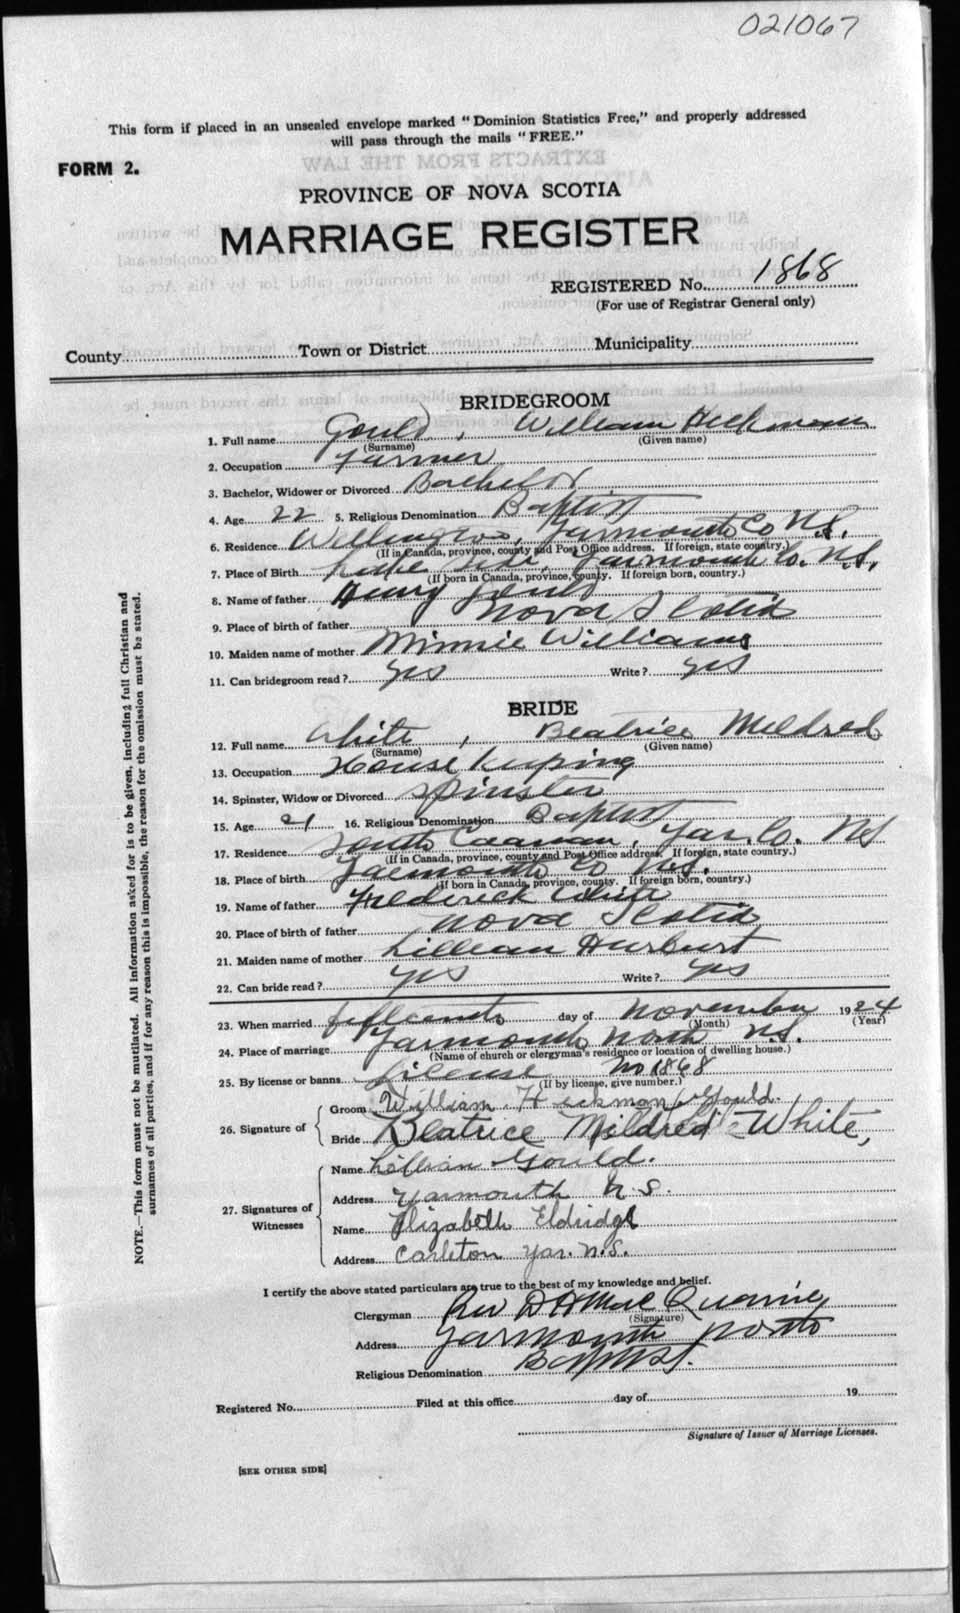 021067
This form if placed in an unsealed envelope marked "Dominion Statistics Free," and properly addressed
will pass through the mails "FREE."
FORM 2.
PROVINCE OF NOVA SCOTIA
MARRIAGE REGISTER
REGISTERED No. 1868
(For use of Registrar General only)
County Town or District Municipality
BRIDEGROOM
1. Full name Gould, William Heckman
(Surname) (Given name)
2. Occupation Farmer
3. Bachelor, Widower or Divorced Bachelor
4. Age 22 5. Religious Denomination Baptist
6. Residence Wellington, Yarmouth Co N.S.
(If in Canada, province, county and Post Office address. If foreign, state country.)
7. Place of Birth Lake Side, Yarmouth Co. N.S.
(If born in Canada, province, county. If foreign born, country.)
8. Name of father Henry Gould
9. Place of birth of father Nova Scotia
10. Maiden name of mother Minnie Williams
11. Can bridegroom read? yes Write? yes
BRIDE
12. Full name White, Beatrice Mildred
(Surname) (Given name)
13. Occupation House keeping
14. Spinster, Widow or Divorced Spinster
15. Age 21 16. Religious Denomination Baptist
17. Residence South Canaan, Yar. Co. NS
(If in Canada, province, county and Post Office address. If foreign, state country.)
18. Place of birth Yarmouth Co N.S.
(If born in Canada, province, county. If foreign born, country.)
19. Name of father Frederick White
20. Place of birth of father Nova Scotia
21. Maiden name of mother Lillian Hurburt
22. Can bride read? yes Write? yes
23. When married fifteenth day of November 1924
(Month) (Year)
24. Place of marriage Yarmouth North N.S.
(Name of church or clergyman's residence or location of dwelling house.)
25. By license or banns License No 1868
(If by license, give number.)
26. Signature of
Groom William Heckman Gould.
Bride Beatrice Mildred White,
27. Signatures of Witnesses
Name Lillian Gould.
Address Yarmouth N.S.
Name Elizabeth Eldridge
Address Carleton Yar. N.S.
I certify the above stated particulars are true to the best of my knowledge and belief.
Clergyman Rev D H MacQuarrie
(Signature)
Address Yarmouth North
Religious Denomination Baptist.
Registered No. Filed at this office day of 19
Signature of Issuer of Marriage Licenses.
[SEE OTHER SIDE]
NOTE.—This form must not be mutilated. All information asked for is to be given, including full Christian and
surnames of all parties, and if for any reason this is impossible, the reason for the omission must be stated.